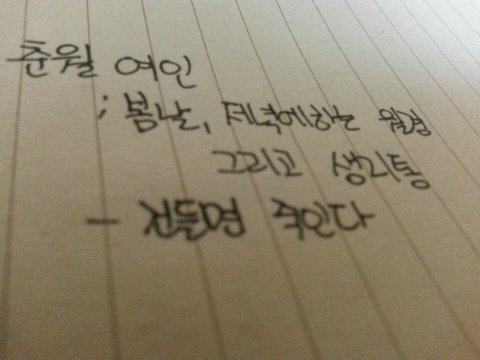 춘월 여인
; 봄날, 저녁에하는 월경
그리고 생리통
- 건들면 죽인다